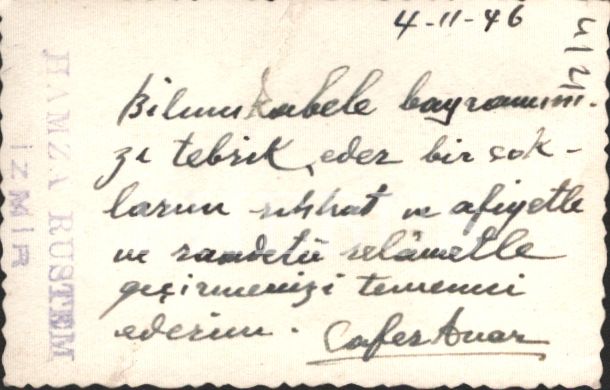 4-11-46
Bilmukabele bayramını-
zı tebrik eder bir çok-
larını sıhhat ve afiyetle
ve saadetü selâmetle
geçirmenizi temenni
ederim.
Cafer
HAMZA RUSTEM
İZMİR